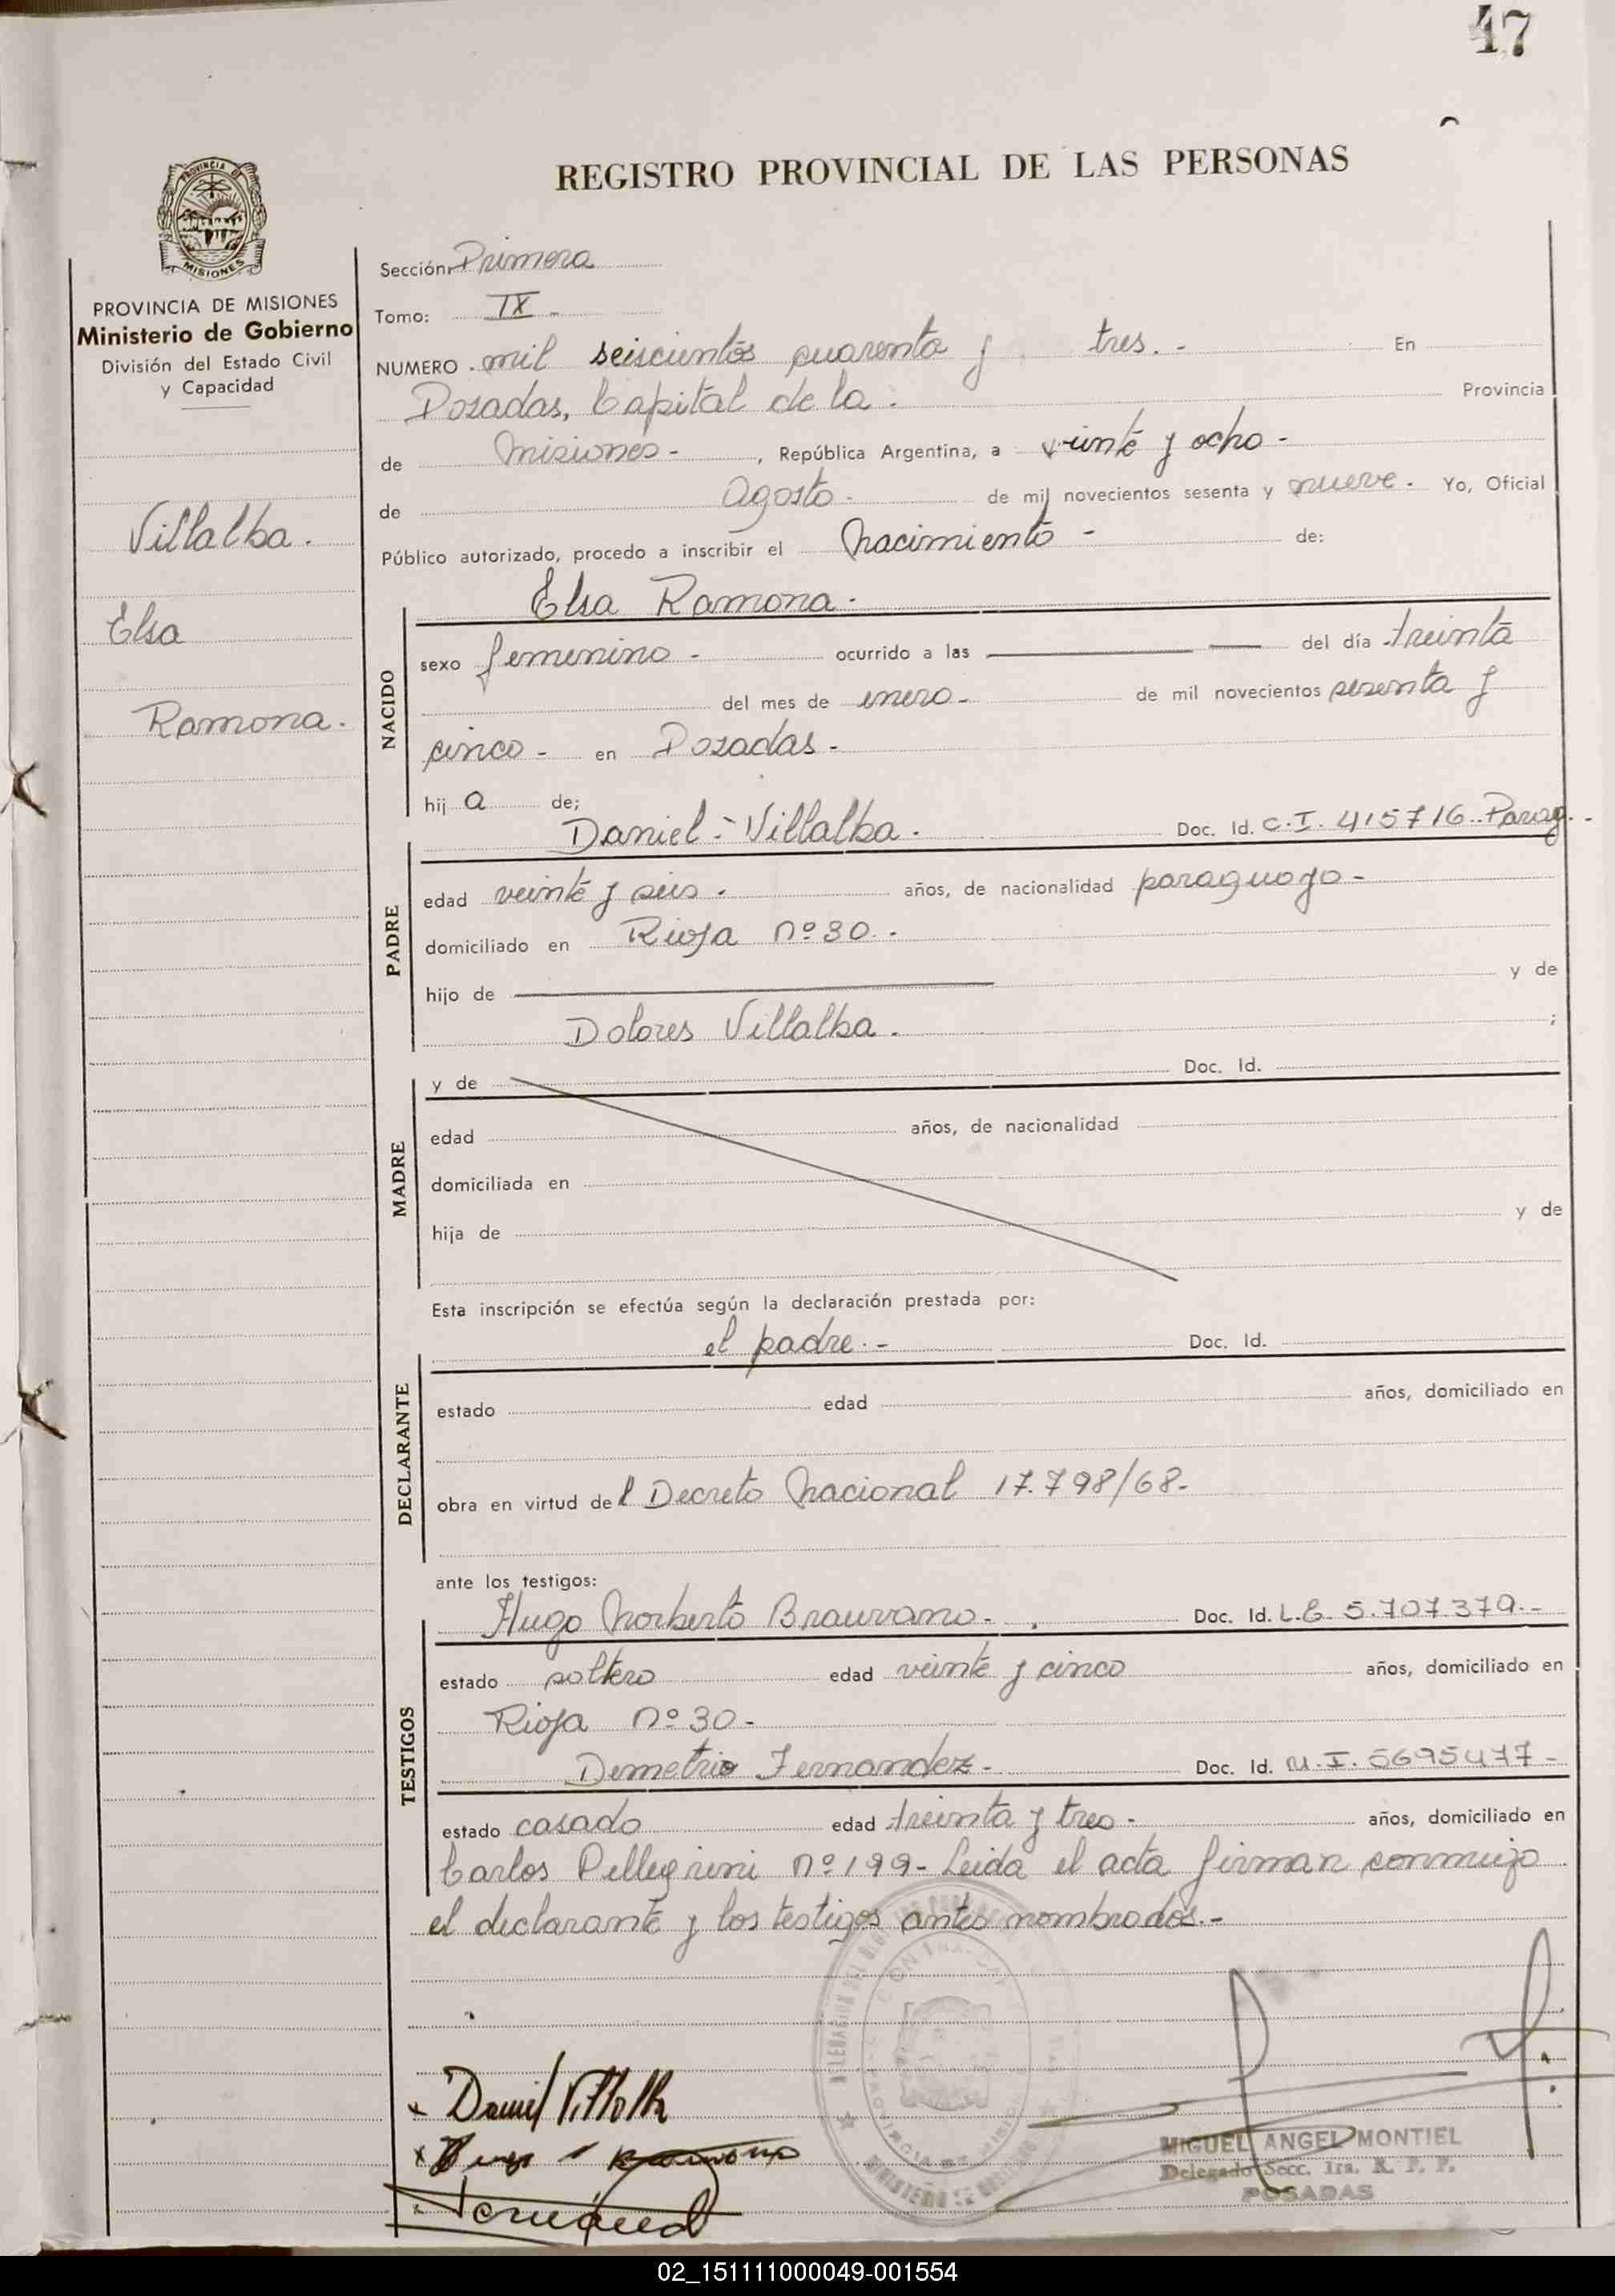 47
REGISTRO PROVINCIAL DE LAS PERSONAS
PROVINCIA DE MISIONES
Ministerio de Gobierno
División del Estado Civil
y Capacidad
Villalba.
Elsa
Ramona.
Sección: Primera
Tomo: IX -
NUMERO mil seiscientos cuarenta y tres. - En
Posadas, Capital de la. Provincia
de Misiones - , República Argentina, a veinte y ocho -
de Agosto - de mil novecientos sesenta y nueve. Yo, Oficial
Público autorizado, procedo a inscribir el Nacimiento - de:
Elsa Ramona.
NACIDO
sexo femenino - ocurrido a las del día treinta
del mes de enero - de mil novecientos sesenta y
cinco - en Posadas -
hij a de;
Daniel - Villalba. Doc. Id. C.I. 415716 Parag. -
PADRE
edad veinte y seis. años, de nacionalidad paraguayo -
domiciliado en Rioja nº 30. -
hijo de y de
Dolores Villalba. ;
MADRE
y de Doc. Id.
edad años, de nacionalidad
domiciliada en
hija de y de
Esta inscripción se efectúa según la declaración prestada por:
el padre. - Doc. Id.
DECLARANTE
estado edad años, domiciliado en
obra en virtud del Decreto Nacional 17.798/68-
ante los testigos:
Hugo Norberto Doc. Id. L.E. 5.707.379.-
TESTIGOS
estado soltero edad veinte y cinco años, domiciliado en
Rioja nº 30 -
Demetrio Fernandez - Doc. Id. M.I. 5695477 -
estado casado edad treinta y tres - años, domiciliado en
Carlos Pellegrini nº 199- Leida el acta firman conmigo
el declarante y los testigos antes nombrados. -
Daniel Villalba
MIGUEL ANGEL MONTIEL
Delegado Secc. 1ra. R. P. P.
POSADAS
02_151111000049-001554